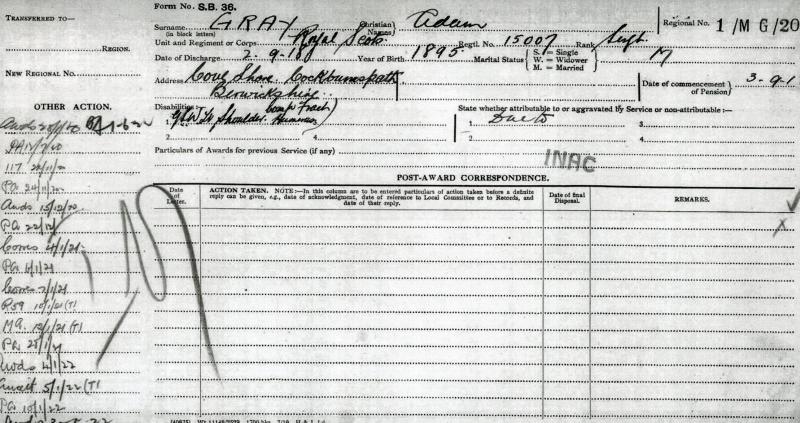 Form No. S.B. 36.
TRANSFERRED TO—
REGION.
NEW REGIONAL No.
OTHER ACTION.
Surname GRAY Christian Names Adam Regional No. 1/MG/20
(in block letters)
Unit and Regiment or Corps Royal Scots Regtl. No. 15007 Rank Sergt
Date of Discharge 2.9.18 Year of Birth 1895 Marital Status S. = Single W. = Widower M. = Married M
Address Cove Shore Cockburnspath Date of commencement of Pension 3-9-1
Berwickshire
Disabilities State whether attributable to or aggravated by Service or non-attributable:—
1. GSW Lt Shoulder. Comp Fract Humerus 3. 1. Due to 3.
2. 4. 2. 4.
Particulars of Awards for previous Service (if any)
INAC
POST-AWARD CORRESPONDENCE.
Date of Letter.
ACTION TAKEN. NOTE:—In this column are to be entered particulars of action taken before a definite reply can be given, e.g., date of acknowledgment, date of reference to Local Committee or to Records, and date of their reply.
Date of final Disposal.
REMARKS.
X
117
PA 24/11/20
Awds 15/12/20
PA 22/12/
Coms 4/1/21
PA 6/1/21
R59 10/1/21 (T)
MA. 12/1/21 (T)
PA 25/1/21
Awds 4/1/22
Await 5/1/22 (T)
PA 10/1/22